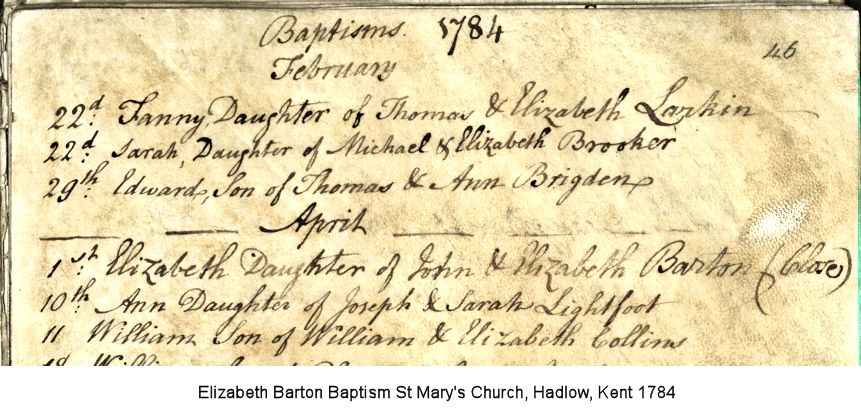 Baptisms. 1784
46
February
22d. Fanny, Daughter of Thomas & Elizabeth Larkin
22d. Sarah, Daughter of Michael & Elizabeth Brooker
29th. Edward, Son of Thomas & Ann Brigden
April
1st. Elizabeth Daughter of John & Elizabeth Barton (Close)
10th. Ann Daughter of Joseph & Sarah Lightfoot
11 William Son of William & Elizabeth Collins
Elizabeth Barton Baptism St Mary's Church, Hadlow, Kent 1784